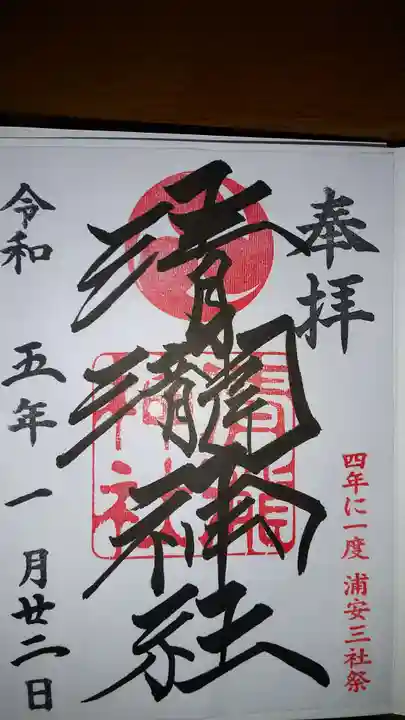 奉拝
四年に一度 浦安三社祭
清瀧神社
令和 五年 一月廿二日